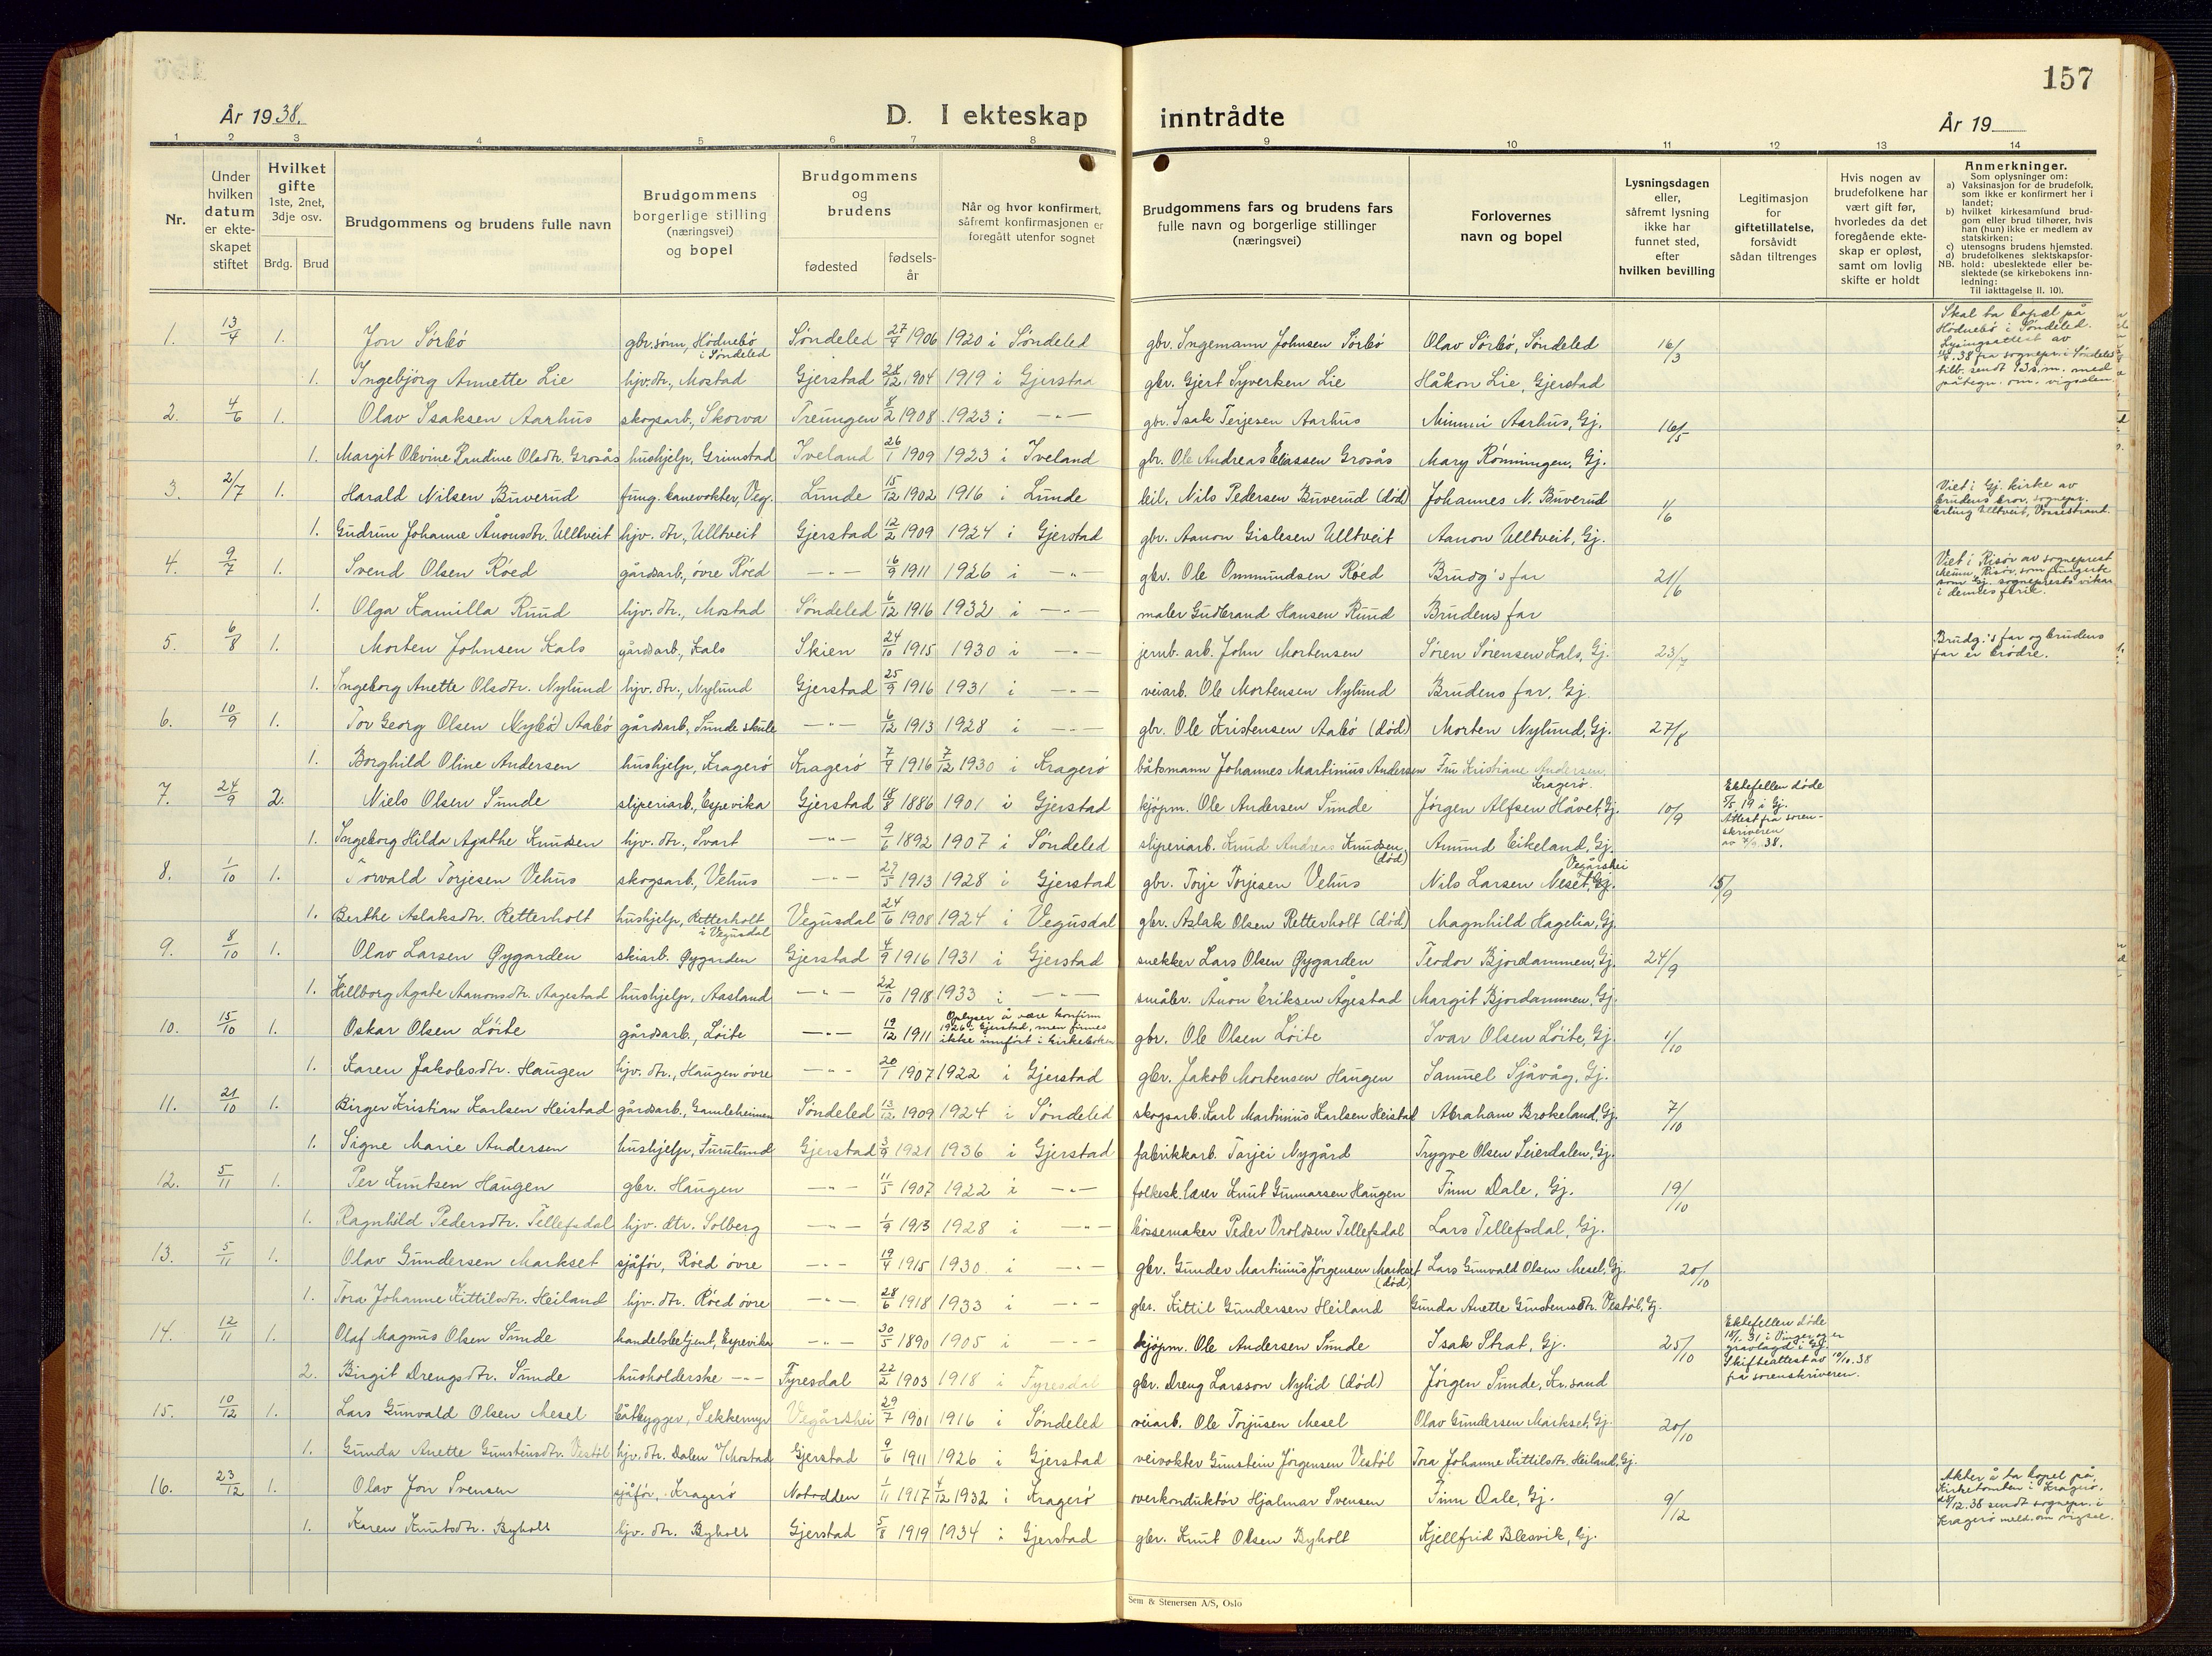 157
År 1938.
D. I ekteskap inntrådte
År 19
1 2 3 4 5 6 7 8 9 10 11 12 13 14
Nr.
Under hvilken datum er ekteskapet stiftet
Hvilket gifte 1ste, 2net, 3dje osv.
Brdg. Brud
Brudgommens og brudens fulle navn
Brudgommens borgerlige stilling (næringsvei) og bopel
Brudgommens og brudens
fødested
fødselsår
Når og hvor konfirmert, såfremt konfirmasjonen er foregått utenfor sognet
Brudgommens fars og brudens fars fulle navn og borgerlige stillinger (næringsvei)
Forlovernes navn og bopel
Lysningsdagen eller, såfremt lysning ikke har funnet sted, efter hvilken bevilling
Legitimasjon for giftetillatelse, forsåvidt sådan tiltrenges
Hvis nogen av brudefolkene har vært gift før, hvorledes da det foregående ekteskap er opløst, samt om lovlig skifte er holdt
Anmerkninger.
Som oplysninger om:
a) Vaksinasjon for de brudefolk, som ikke er konfirmert her i landet;
b) hvilket kirkesamfund brudgom eller brud tilhører, hvis han (hun) ikke er medlem av statskirken;
c) utensogns brudens hjemsted.
d) brudefolkenes slektskapsforhold: ubeslektede eller beslektede (se kirkebokens innledning:
NB. Til iakttagelse II. 10).
1. 13/4 1. Jon Sørbö gbr.sønn, Hödnebö i Söndeled Söndeled 27/4 1906 1920 i Söndeled gbr. Ingemann Johnsen Sörbö Olav Sörbö, Söndeled 16/3 Skal ta bopel på Hödnebö i Söndeled. Lysingsattest av 38 fra sognepr. i Söndeled med påtegn. om vigselen
1. Ingebjörg Annette Lie hjv.dtr., Mostad Gjerstad 28/12 1904 1919 i Gjerstad gbr. Gjert Syvertsen Lie Håkon Lie, Gjerstad
2. 4/6 1. Olav Isaksen Aarhus skogsarb., Skorva Treungen 8/2 1908 1923 i -"- gbr. Isak Terjesen Aarhus Mimmi Aarhus, Gj. 16/5
1. Margit Olevine Randine Olsdtr. Grosås hushjelp, Grimstad Iveland 26/1 1909 1923 i Iveland gbr. Ole Andreas Eliassen Grosås Mary Rönningen, Gj.
3. 2/7 1. Harald Nilsen Buverud fung. banevokter, Veg. Lunde 15/12 1902 1916 i Lunde leil. Nils Pedersen Buverud (död) Johannes N. Buverud 1/6 Viet i Gj. kirke av brudens bror, sognepr. Erling Ulltveit, Vossestrand.
1. Gudrun Johanne Ånonsdtr. Ulltveit hjv. dtr., Ulltveit Gjerstad 12/2 1909 1924 i Gjerstad gbr. Aanon Gislesen Ulltveit Aanon Ulltveit, Gj.
4. 9/7 1. Svend Olsen Röed gårdsarb., övre Röed -"- 16/9 1911 1926 i -"- gbr. Ole Ommundsen Röed Brudg's far 21/6 Viet i Risör av sogneprest Risör, som fungerte som Gj. sogneprests vikar i dennes ferie.
1. Olga Kamilla Ruud hjv. dtr., Mostad Söndeled 6/12 1916 1932 i -"- maler Gudbrand Hansen Ruud Brudens far
5. 6/8 1. Morten Johnsen Kals gårdsarb., Kals Skien 24/10 1915 1930 i -"- jernb. arb. John Mortensen Sören Sörensen Kals, Gj. 23/7 Brudg.'s far og brudens far er brödre.
1. Ingeborg Anette Olsdtr. Nylund hjv. dtr., Nylund Gjerstad 25/9 1916 1931 i -"- veiarb. Ole Mortensen Nylund Brudens far, Gj.
6. 10/9 1. Tor Georg Olsen (Nybö) Aabö gårdsarb., Sunde skule -"- 6/12 1913 1928 i -"- gbr. Ole Kristensen Aabö (död) Morten Nylund, Gj. 27/8
1. Borghild Oline Andersen hushjelp, Kragerö Kragerö 7/9 1916 7/12 1930 i Kragerö båtsmann Johannes Martinius Andersen Fru Kristiane Andersen, Kragerö
7. 24/9 2. Niels Olsen Sunde sliperiarb., Espevika Gjerstad 18/8 1886 1901 i Gjerstad kjöpm. Ole Andersen Sunde Jörgen Alfsen Håvet, Gj. 10/9 Ektefellen döde 19 i Gj. Attest fra sorenskriveren av 38.
1. Ingeborg Hilda Agathe Knudsen hjv. dtr., Svart -"- 9/6 1892 1907 i Söndeled sliperiarb. Knud Andreas Knudsen, (död) Amund Eikeland, Gj.
8. 1/10 1. Torvald Torjesen Vehus skogsarb., Vehus -"- 29/5 1913 1928 i Gjerstad gbr. Torje Torjesen Vehus Nils Larsen Neset, Vegårshei 15/9
1. Berthe Aslaksdtr. Retterholt hushjelp, Retterholt i Vegusdal Vegusdal 24/6 1908 1924 i Vegusdal gbr. Aslak Olsen Retterholt (död) Magnhild Hagelia, Gj.
9. 8/10 1. Olav Larsen Øygarden skiarb. Øygarden Gjerstad 4/9 1916 1931 i Gjerstad snekker Lars Olsen Øygarden Teodor Bjordammen, Gj. 24/9
1. Hillborg Agate Aanonsdtr. Aagestad hushjelp, Aasland -"- 22/10 1918 1933 i -"- småbr. Ånon Eriksen Ågestad Margit Bjordammen, Gj.
10. 15/10 1. Oskar Olsen Löite gårdsarb., Löite -"- 19/12 1911 Oplyser å være konfirm 1926 i Gjerstad, men finnes ikke innfört i kirkeboken gbr. Ole Olsen Löite Ivar Olsen Löite, Gj. 1/10
1. Karen Jakobsdtr. Haugen hjv. dtr., Haugen övre -"- 20/1 1907 1922 i Gjerstad gbr. Jakob Mortensen Haugen Samuel Sjåvåg, Gj.
11. 21/10 1. Birger Kristian Karlsen Heistad gårdsarb., Gamleheimen Söndeled 13/12 1909 1924 i Söndeled skogsarb. Karl Martinius Karlsen Heistad Abraham Brokeland, Gj. 7/10
1. Signe Marie Andersen hushjelp, Furulund Gjerstad 3/9 1921 1936 i Gjerstad fabrikkarb. Tarjei Nygård Trygve Olsen Seierdalen, Gj.
12. 5/11 1. Per Knutsen Haugen gbr. Haugen -"- 11/5 1907 1922 i -"- folkesk.lærer Knut Gunnarsen Haugen Finn Dale, Gj. 19/10
1. Ragnhild Pedersdtr. Tellefsdal hjv. dtr. Solberg -"- 1/9 1913 1928 i -"- bössemaker Peder Oroldsen Tellefsdal Lars Tellefsdal, Gj.
13. 5/11 1. Olav Gundersen Markset sjåför, Röed övre -"- 19/4 1915 1930 i -"- gbr. Gunder Martinius Jörgensen Markset (död) Lars Gunvald Olsen Mesel, Gj. 20/10
1. Tora Johanne Kittilsdtr. Heiland hjv. dtr. Röed övre -"- 28/6 1918 1933 i -"- gbr. Kittil Gundersen Heiland Gunda Anette Gunstensdtr. Vestöl, Gj.
14. 12/11 1. Olaf Magnus Olsen Sunde handelsbetjent, Espevika -"- 30/5 1890 1905 i -"- kjöpm. Ole Andersen Sunde Isak Strat, Gj. 25/10 Ektefellen döde 18/ 31 i Vinger og er gravlagd i Gj. Skifteattest av 10/10.38 fra sorenskriveren.
2. Birgit Drengsdtr. Sunde husholderske -"- Fyresdal 22/2 1903 1918 i Fyresdal gbr. Dreng Larsson Nylid (död) Jörgen Sunde, Kr.sand
15. 10/12 1. Lars Gunvald Olsen Mesel båtbygger, Sekkemyr Vegårshei 29/7 1901 1916 i Söndeled veiarb. Ole Torjusen Mesel Olav Gundersen Markset, Gj. 20/10
1. Gunda Anette Gunsteinsdtr. Vestöl hjv. dtr. Dalen v/Mostad Gjerstad 9/6 1911 1926 i Gjerstad veivokter Gunstein Jörgensen Vestöl Tora Johanne Kittilsdtr. Heiland, Gj.
16. 23/12 1. Olav Jon Svensen sjåför, Kragerö Notodden 1/11 1917 4/12 1932 i Kragerö overkonduktör Hjalmar Svensen Finn Dale, Gj. 9/12 Akter å ta bopel på Kirketomten i Kragerö. /12.38 sendt sognepr. i Kragerö meld. om vigsel.
1. Karen Knutsdtr. Byholt hjv. dtr. Byholt Gjerstad 5/8 1919 1934 i Gjerstad gbr. Knut Olsen Byholt Kjellfrid Blesvik, Gj.
Sem & Stenersen A/S, Oslo